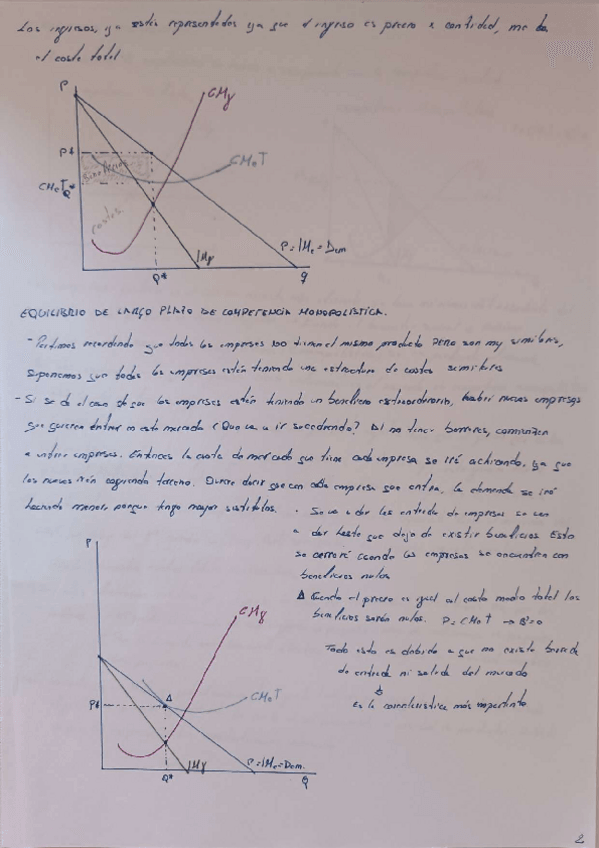 Los ingresos, ya están representados ya que el ingreso es precio x cantidad, me da
el coste total
P
CMg
P*
Beneficios
CMeT
CMeT
Q*
costes
P=IMe=Dem
IMg
Q*
Q
EQUILIBRIO DE LARGO PLAZO DE COMPETENCIA MONOPOLÍSTICA.
- Partimos recordando que todas las empresas no tienen el mismo producto pero son muy similares,
suponemos que todas las empresas están teniendo una estructura de costes similares
- Si se da el caso de que las empresas estén teniendo un beneficio extraordinario, habrá nuevas empresas
que quieran entrar en este mercado ¿Que va a ir sucediendo? Al no tener barreras, comienzan
a entrar empresas. Entonces la cuota de mercado que tiene cada empresa se irá achicando, ya que
las nuevas irán copiando terreno. Quiere decir que con cada empresa que entra, la demanda se irá
haciendo menor porque tengo mayor sustitutos.
· Se va a dar la entrada de empresas se van
a dar hasta que deje de existir beneficios. Esto
se cerrará cuando las empresas se encuentren con
beneficios nulos
Δ Cuando el precio es igual al costo medio total los
beneficios serán nulos. P=CMeT → B=0
Todo esto es debido a que no existe barrera
de entrada ni salida del mercado
Es la característica más importante
P
CMg
Δ
CMeT
P*
IMg
P=IMe=Dem.
Q*
Q
2